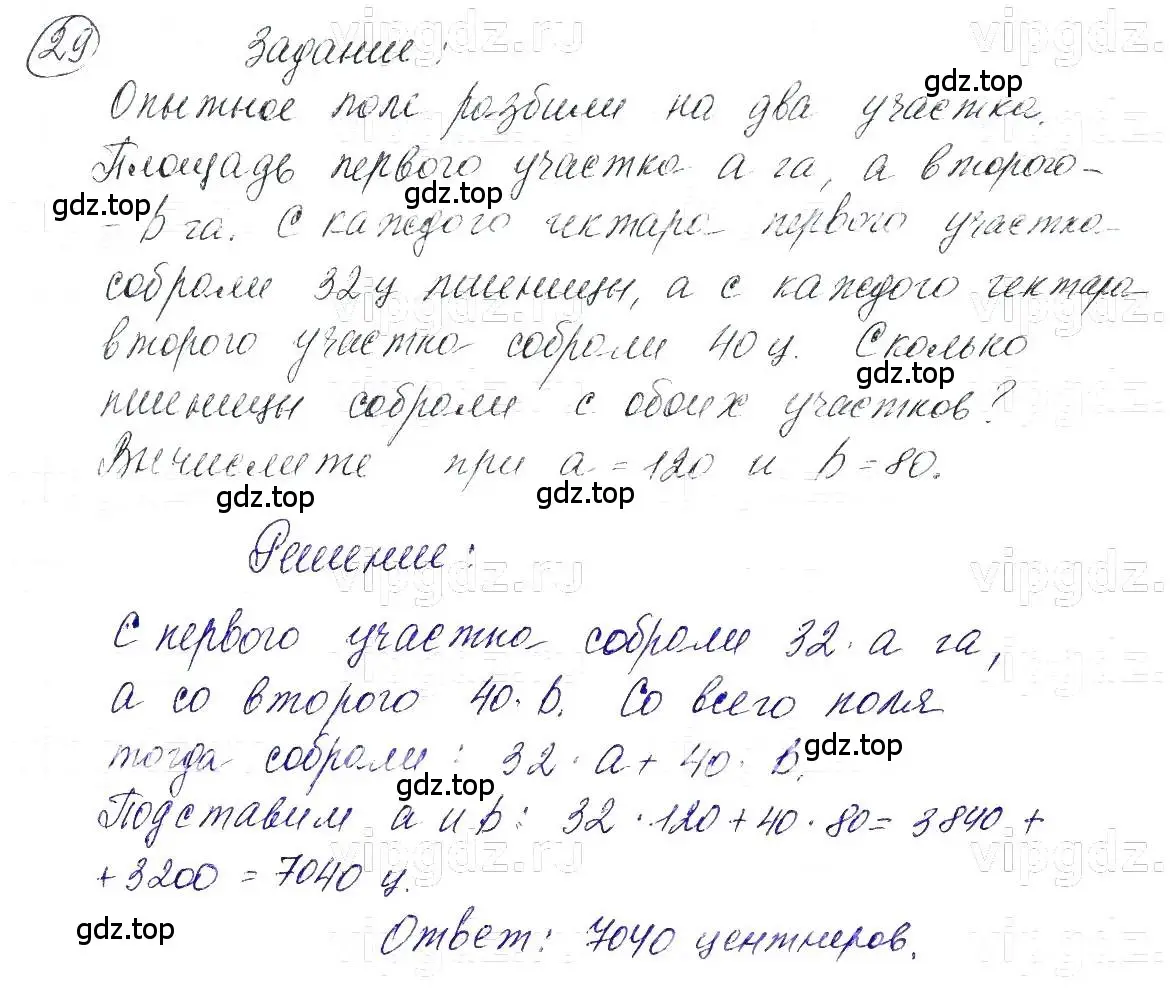 29 Задание:
Опытное поле разбили на два участка.
Площадь первого участка a га, а второго -
- b га. С каждого гектара первого участка
собрали 32 ц пшеницы, а с каждого гектара
второго участка собрали 40 ц. Сколько
пшеницы собрали с обоих участков?
Вычислите при a = 120 и b = 80.
Решение:
С первого участка собрали 32 · a га,
а со второго 40 · b. Со всего поля
тогда собрали: 32 · a + 40 · b.
Подставим a и b: 32 · 120 + 40 · 80 = 3840 +
+ 3200 = 7040 ц.
Ответ: 7040 центнеров.
vipgdz.ru
vipgdz.ru
gdz.top
gdz.top
gdz.top
vipgdz.ru
vipgdz.ru
gdz.top
gdz.top
gdz.top
vipgdz.ru
vipgdz.ru
gdz.top
gdz.top
vipgdz.ru
vipgdz.ru
gdz.top